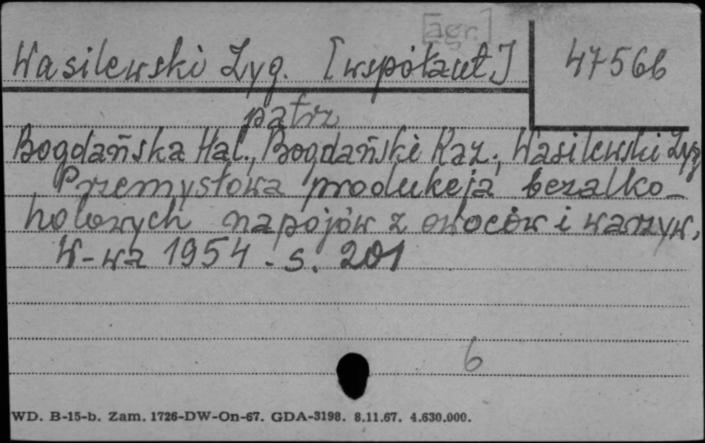 [agr.]
Wasilewski Zyg. [współaut.]
47566
patrz
Bogdańska Hal., Bogdański Kaz., Wasilewski Zyg
Przemysłowa produkcja bezalko-
holowych napojów z owoców i warzyw,
W-wa 1954. s. 201
6
WD. B-15-b. Zam. 1726-DW-On-67. GDA-3198. 8.11.67. 4.630.000.